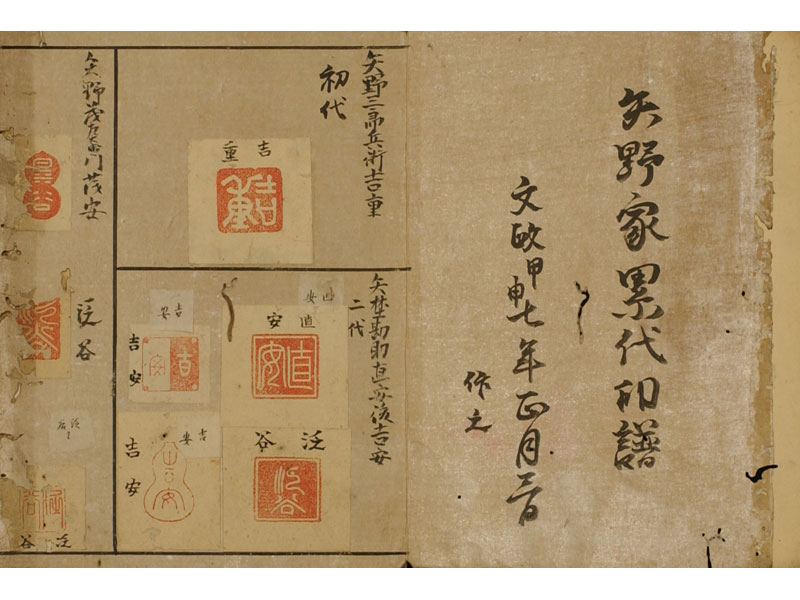 矢野家累代印譜
文政甲申七年正月吉日
作之
矢野三郎兵衛吉重
初代
吉重
矢埜勘助直安後吉安
二代
直安
直安
泛谷
吉安
吉安
吉安
吉安
矢野茂左衛門茂安
泛谷
泛谷
泛谷